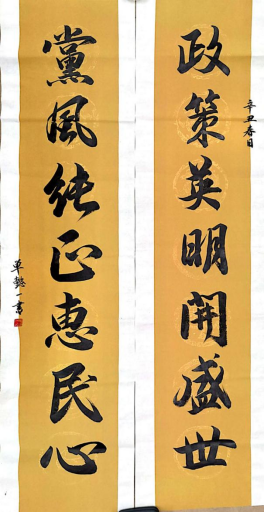 政策英明開盛世
辛丑春日
黨風純正惠民心
單懿一書